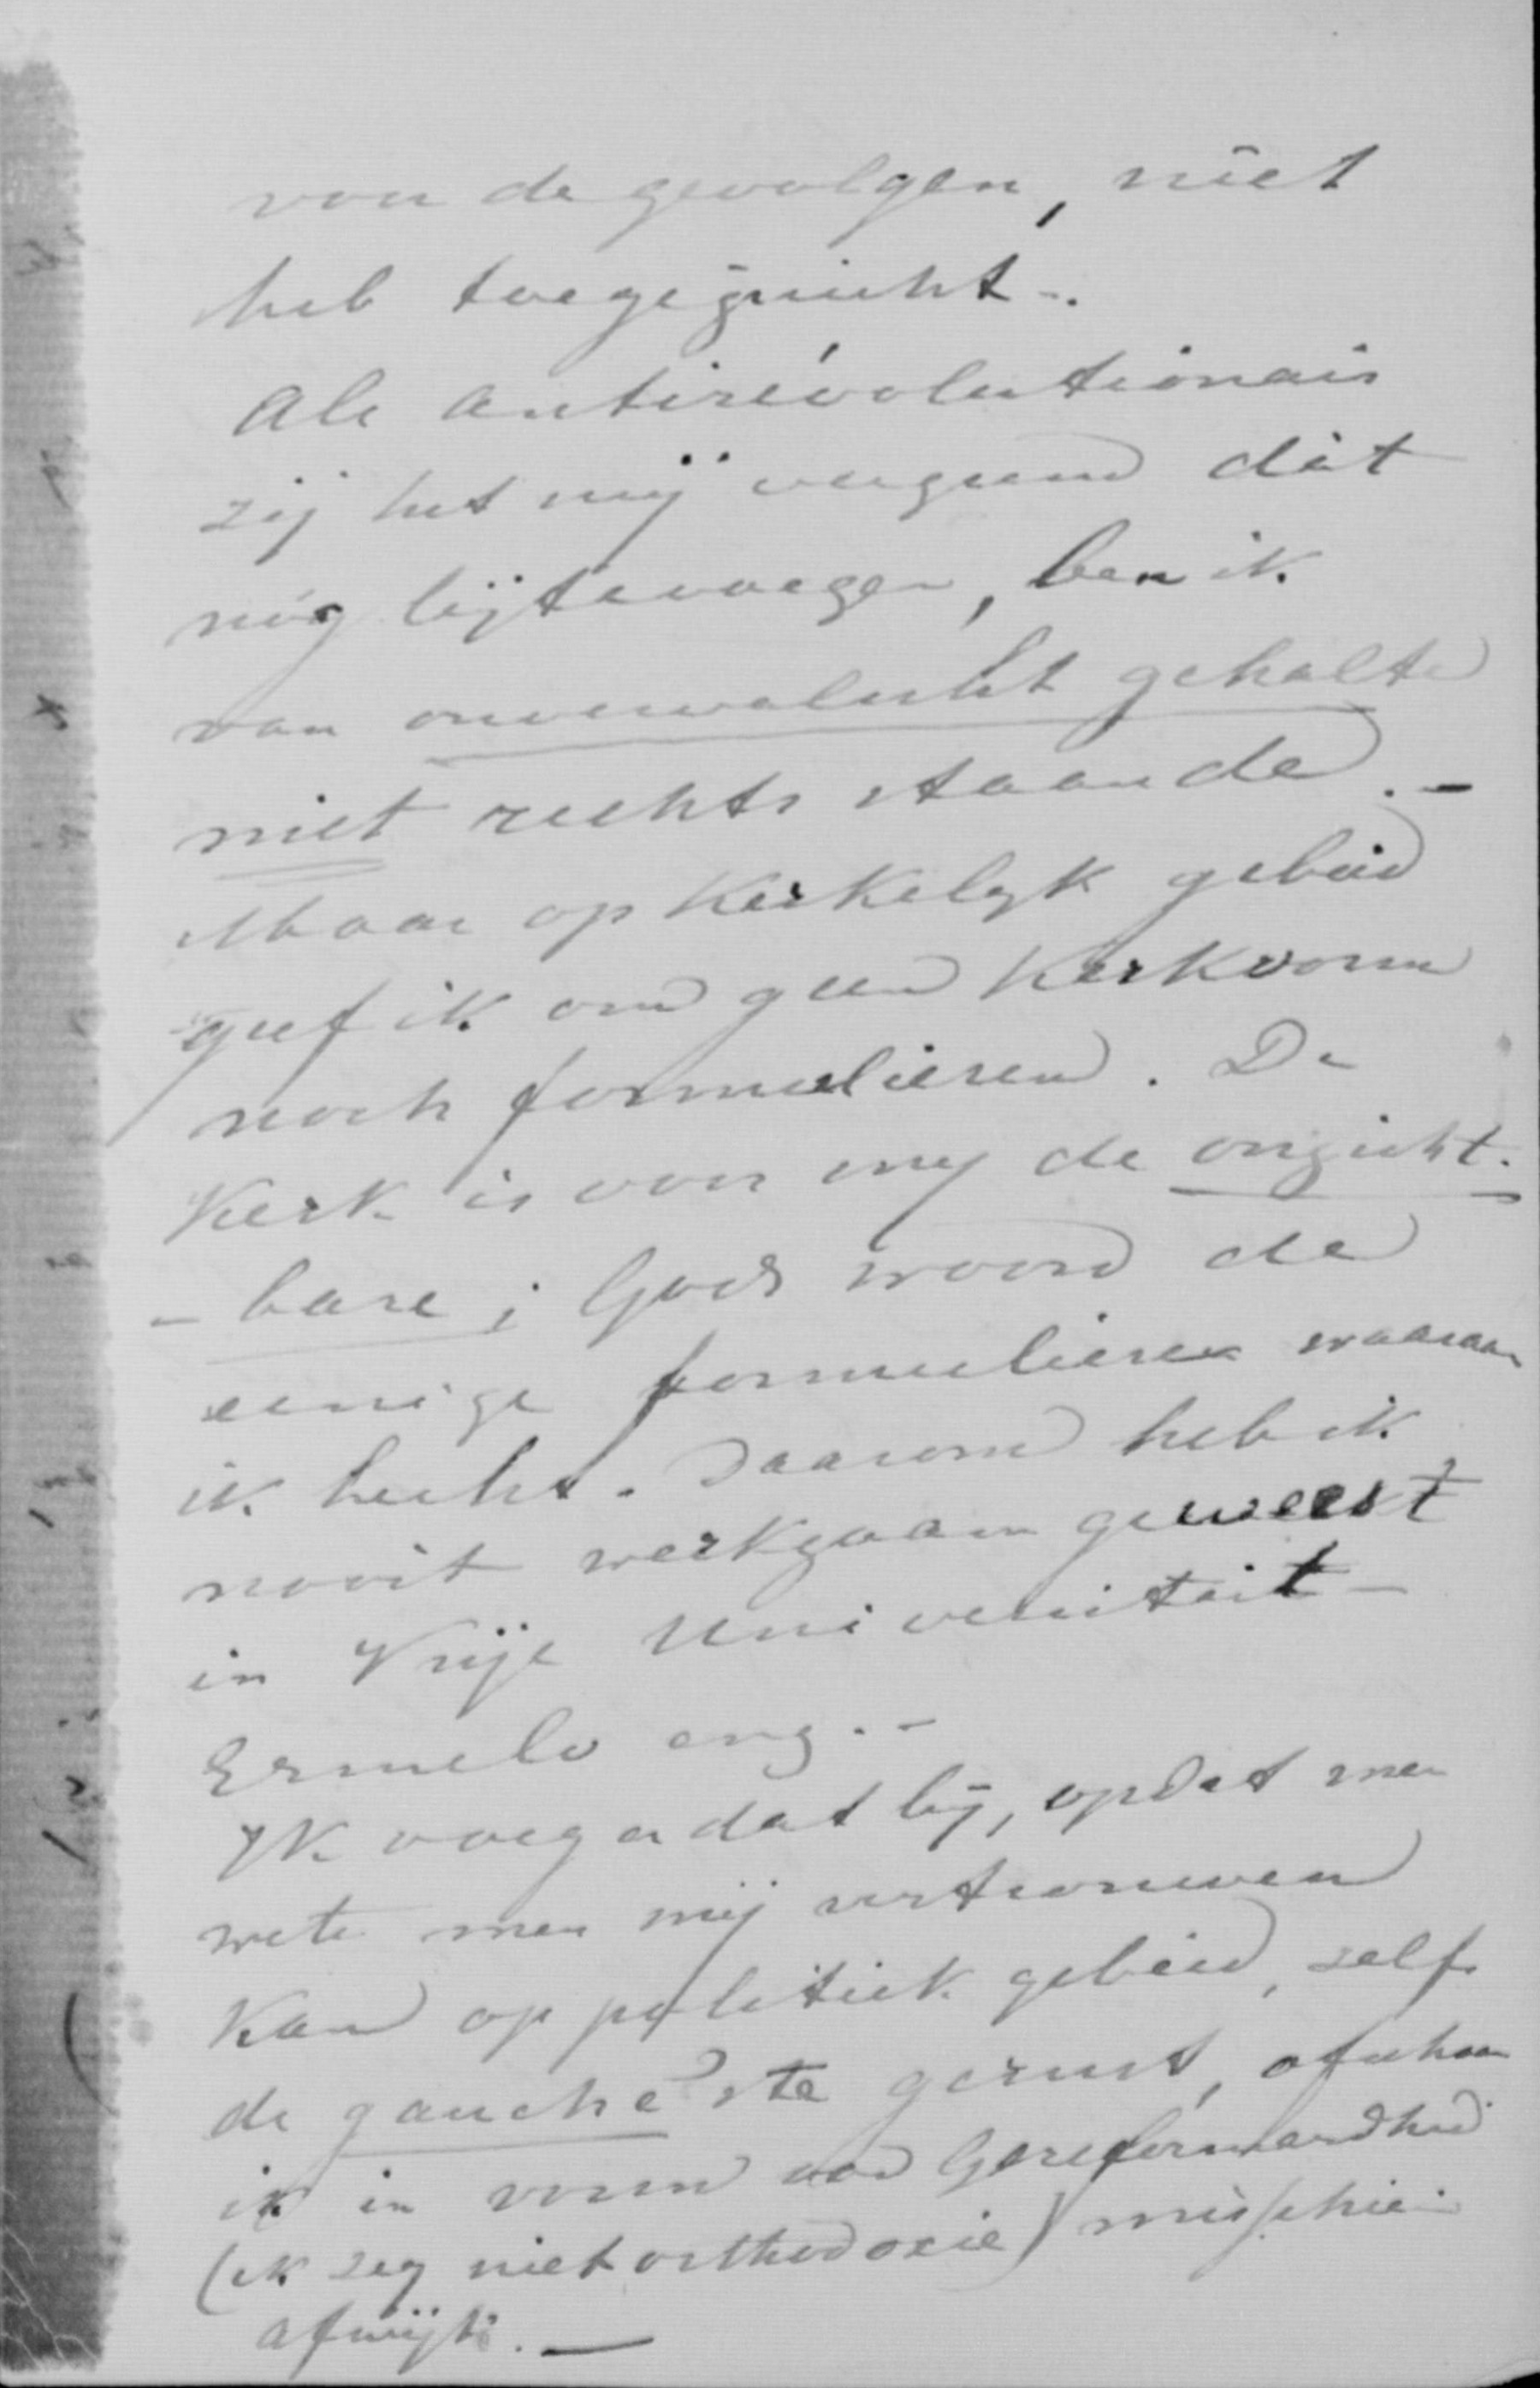 van de gevolgen, niet
heb toegejuicht -.
Als Antirévolutionair
zij het mij vergund dit
nóg bijtevoegen, ben ik
van onvervalscht gehalte
niet rechts staande. -
Maar op Kerkelyk gebied
geef ik om geen Kerkvorm
noch formulieren. De
Kerk is voor my de onzicht-
- bare; Gods woord de
eenige formulieren waaraan
ik hecht. Daarom heb ik
nooit werkzaam geweest
in Vrije Universiteit -
Ermelo enz. -
Ik voeg er dat bij, opdat men
wete men mij vertrouwen
Kan op politiek gebied, zelfs
de gauche ste gerust, ofschoon
ik in vorm van Gereformeerdheid
(ik zeg niet orthodoxie) misschien
afwijk. —